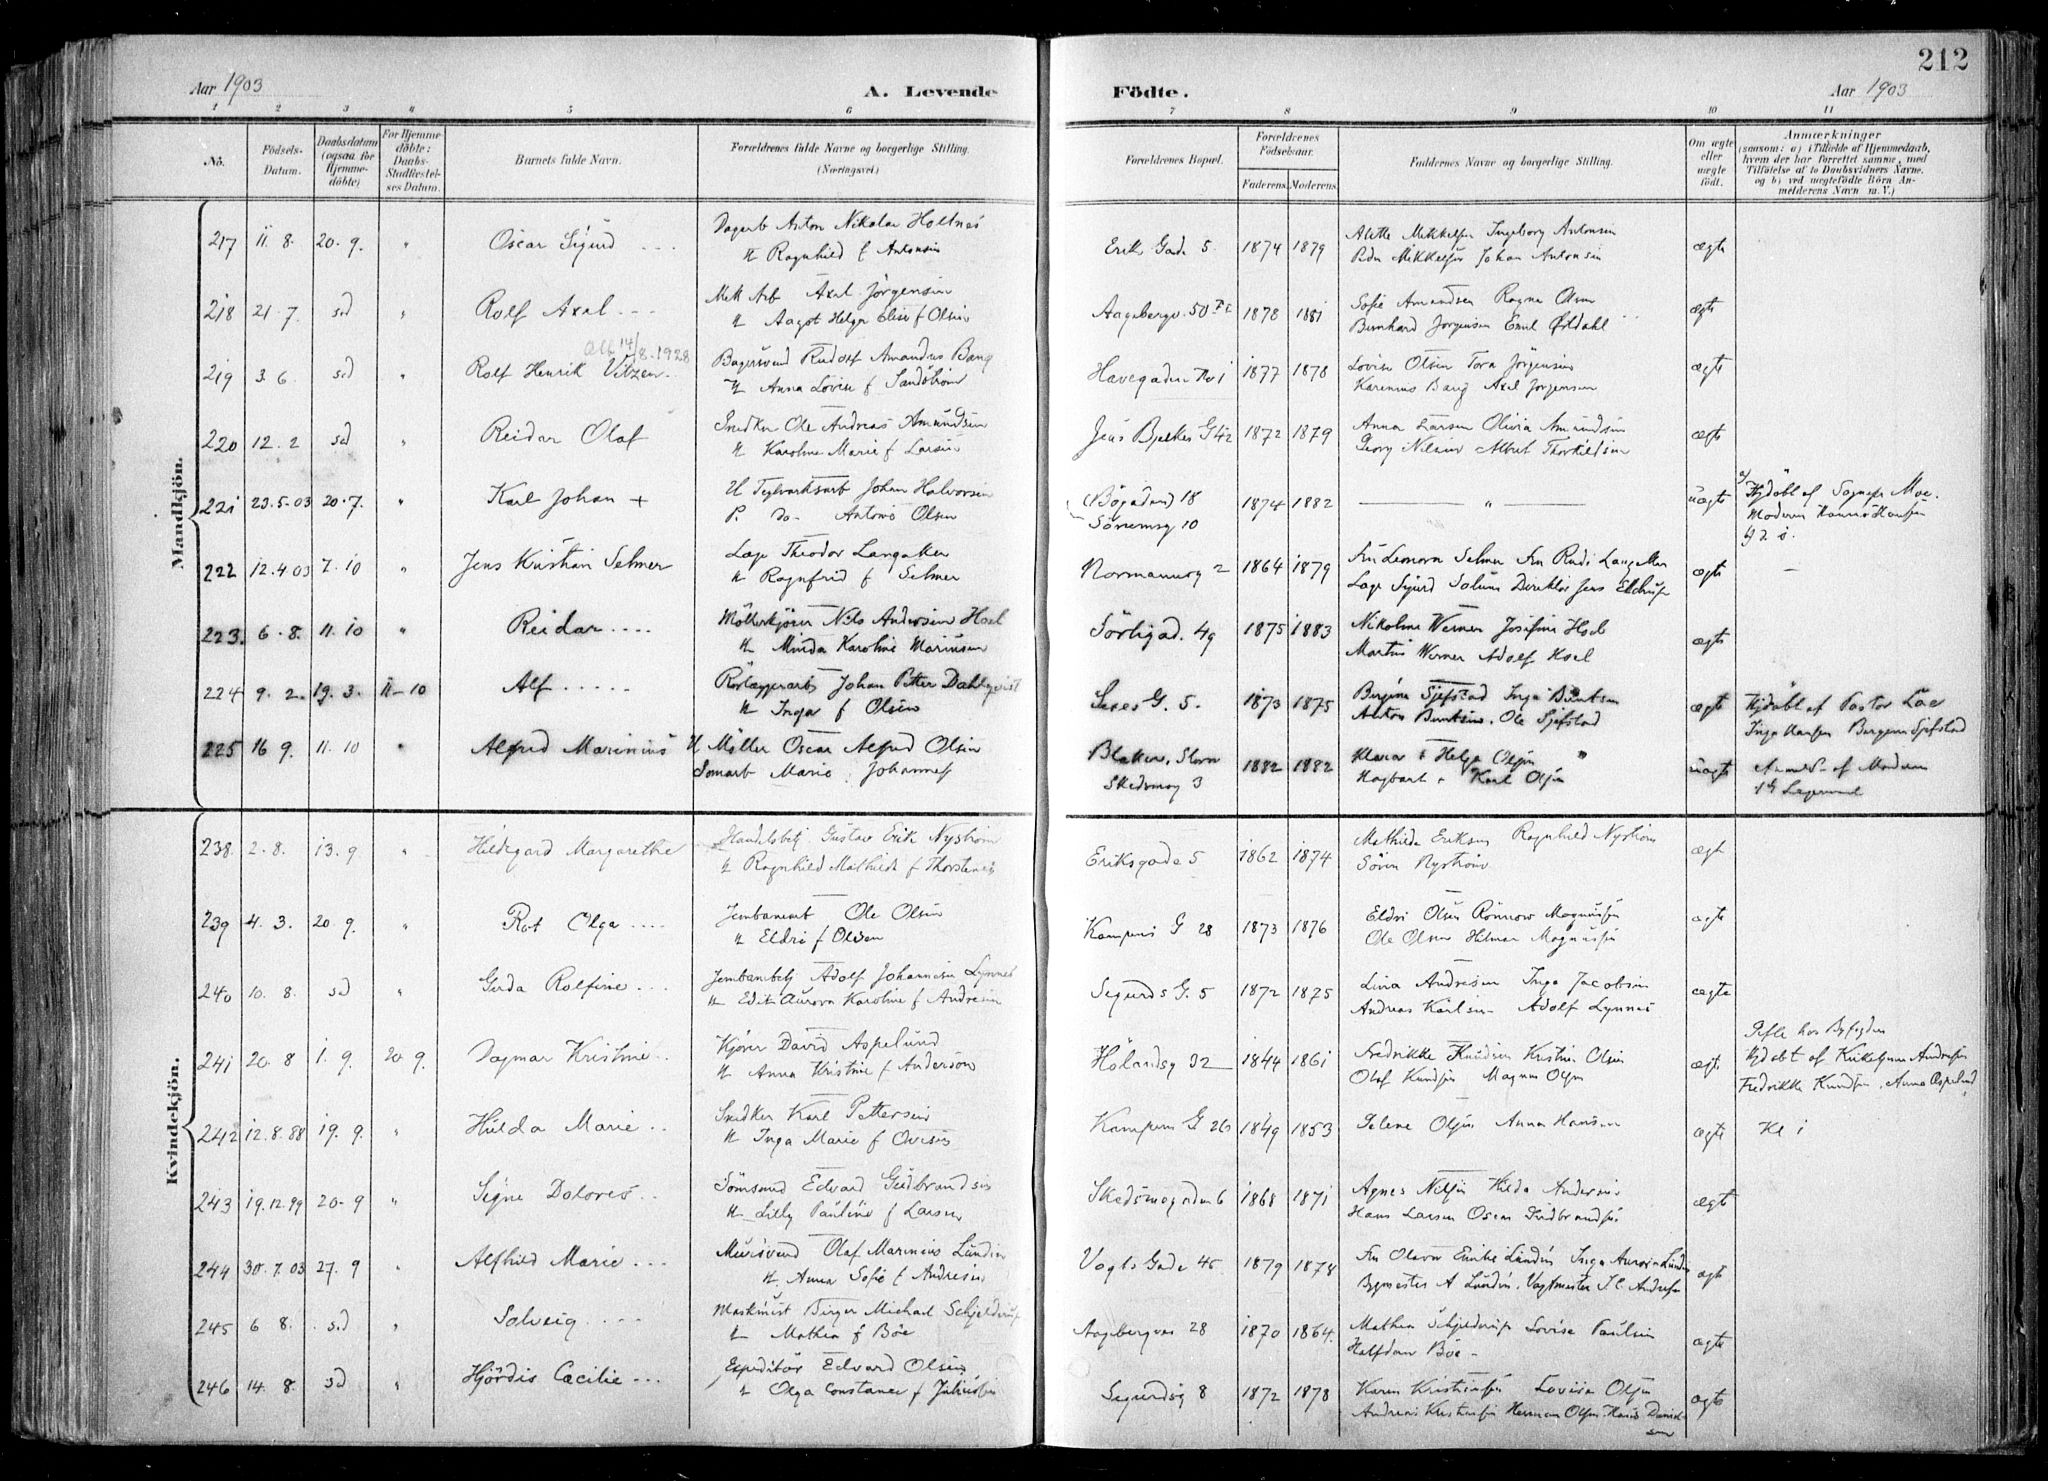 212
Aar 1903
A. Levende Födte.
Aar 1903
1 2 3 4 5 6 7 8 9 10 11
No. Födsels-Datum. Daabsdatum (ogsaa for Hjemmedöbte) For Hjemmedöbte: Daabs-Stadfæstelses Datum. Barnets fulde Navn. Forældrenes fulde Navne og borgerlige Stilling. (Næringsvei.) Forældrenes Bopæl. Forældrenes Födselsaar. Faderens. Moderens. Faddernes Navne og borgerlige Stilling. Om ægte eller uægte födt. Anmærkninger (saasom: a) i Tilfælde af Hjemmedaab, hvem der har forrettet samme, med Tilföielse af to Daabsvidners Navne. og b) ved uægtefödte Börn Anmelderens Navn m. V.)
Mandkjön.
217 11. 8. 20. 9. " Oscar Sigurd Anton Nikolai Holtnes Eriks Gade 5. 1874 1879 Mikkelsen Ingeborg Antonsen ægte
H Ragnhild f Antonsen Peder Mikkelsen Johan Antonsen
218 21. 7. sd " Rolf Axel Mek Arb Axel Jörgensen Aagebergv. 50 1878 1881 Sofie Amundsen Ragna Olsen ægte
H Aagot Helga Elise f Olsen Bernhard Jorgensen Emil
14/8.1928
219 3. 6. sd " Rolf Henrik Vibzen Bagersvend Rudolf Amandus Bang Havegaden No 1 1877 1878 Lovise Olsen Tora Jörgensen ægte
H Anna Lovise f Sandström Karenius Bang Axel Jorgensen
220 12. 2 sd " Reidar Olaf Snedker Ole Andreas Amundsen Jens Bjelkes G 42 1872 1879 Anna Larsen Olivia Amundsen ægte
H Karoline Marie f Larsen Georg Nilsen Albert Thorkildsen
221 23.5.03 20.7. " Karl Johan + U Teglverksarb Johan Halvorsen (Bögaden) 18 1874 1882 " uægte a/ Hjdöbt af Sognepr Moe.
P. do - Antonie Olsen Sörumsg 10 Moderen Hansen
222 12.4 03 7. 10 " Jens Kristian Selmer Læge Theodor Langaker Normannsg 2 1864 1879 Fru Leonora Selmer Fru Langaker ægte
H Ragnfrid f Selmer Læge Sigurd Direktör Jens
223. 6. 8. 11. 10 " Reidar Möllerkjörer Nils Andersen Hoel Sörligad. 49 1875 1883 Nikoline Werner Josefine Hoel ægte
H Minda Karoline Mariusen Martin Werner Adolf Hoel
224 9. 2. 19. 3. 11-10 Alf Rörlæggerarb Johan Petter Dahlqvist G. 5. 1873 1875 Bergine Sjefstad Inga Berntsen ægte Hjdöbt af Pastor
H Inga f Olsen Anton Berntsen. Ole Sjefstad Inga Hansen Bergine Sjefstad
225 16 9. 11. 10 " Alfred Marinius U Möller Oscar Alfred Olsen Blaker, 1882 1882 Klara & Helga Olsen uægte Anmeld. af Moderen
Marie Johannes Skedsmog 3 Hagbart & Karl Olsen
Kvindekjön.
238. 2. 8. 13. 9 " Hildegard Margarethe Handelsbetj Gustav Erik Nyström Eriksgade 5 1862 1874 Mathilda Eriksen Ragnhild Nyström ægt
H Ragnhild Mathilde f Thorstensen Sören Nyström
239 4. 3. 20 9. " Rut Olga Jernbanearb Ole Olsen Kampens G 28 1873 1876 Eldri Olsen Magnussen ægte
H Eldri f Olsen Ole Olsen Hilmar Magnussen
240 10. 8. sd " Gerda Rolfine Jernbanebetj Adolf Johannesen Lynnes Sigurds G. 5 1872 1875 Lina Andresen Inga Jacobsen ægte
H Edit Aurora Karoline f Andresen Andreas Karlsen Adolf Lynnes
241 20. 8 1. 9. 20 9. Dagmar Kristine Kjörer David Aspelund Hölandsg 32 1844 1861 Fredrikke Knudsen Kristine Olsen ægt Hjdöbt af Andresen
H Anna Kristine f Anderson Olaf Knudsen Magnus Olsen Fredrikke Knudsen, Anna Aspelund
242 12. 8. 88 19. 9. " Hulda Marie Snedker Karl Pettersen Kampens G 26 1849 1853 Olsen Anna Hansen ægte Kl i
H Inga Marie f
243 19.12.99 20-9 " Signe Dolores Edvard Gudbrandsen Skedsmogaden 6 1868 1871 Agnes Nilsen Hilda Andersen ægte
H Lilly Pauline f Larsen Hans Larsen Oscar Gudbrandsen
244 30.7.03 27. 9 " Alfhild Marie Mursvend Olaf Marinius Lundin Vogts Gade 45 1879 1878 Fru Lundin Inga Aurora Lundin ægt
H, Anna Sofie f Andresen Bygmester A Lundin. Vagtmester Andresen
245 6 8. sd " Solveig Maskinist Birger Michael Schjelderup Aagebergvei 28 1870 1864. Mathea Schjelderup Lovise Paulsen ægte
H Mathea f Böe Halfdan Böe -
246 14. 8. sd " Hjördis Cæcilie Expeditör Edvard Olsen Sigurdsg 8 1872 1878 Karen Kristiansen Lovise Olsen ægte
H Olga Constance f Juliussen Andreas Kristiansen Herman Olsen Danielsen